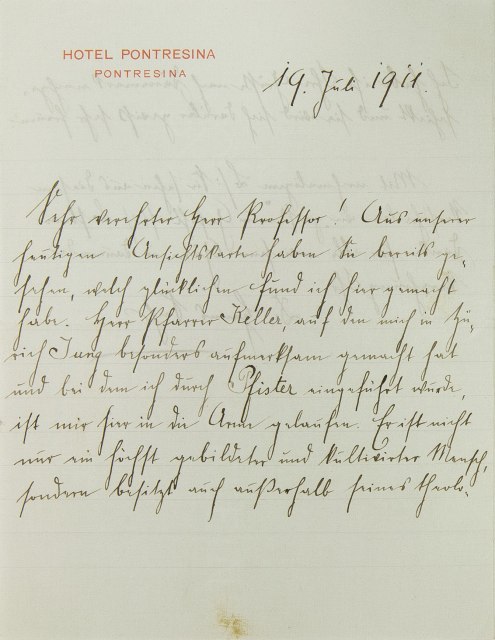 HOTEL PONTRESINA
PONTRESINA
19. Juli 1911.
Sehr verehrter Herr Professor! Aus unserer
heutigen Ansichtskarte haben Sie bereits ge-
sehen, welch glücklichen Fund ich hier gemacht
habe. Herr Pfarrer Keller, auf den mich in Zü-
rich Jung besonders aufmerksam gemacht hat
und bei dem ich durch Pfister eingeführt wurde,
ist mir hier in die Arme gelaufen. Er ist nicht
nur ein höchst gebildeter und kultivirter Mensch,
sondern besitzt auch außerhalb seines theolo-